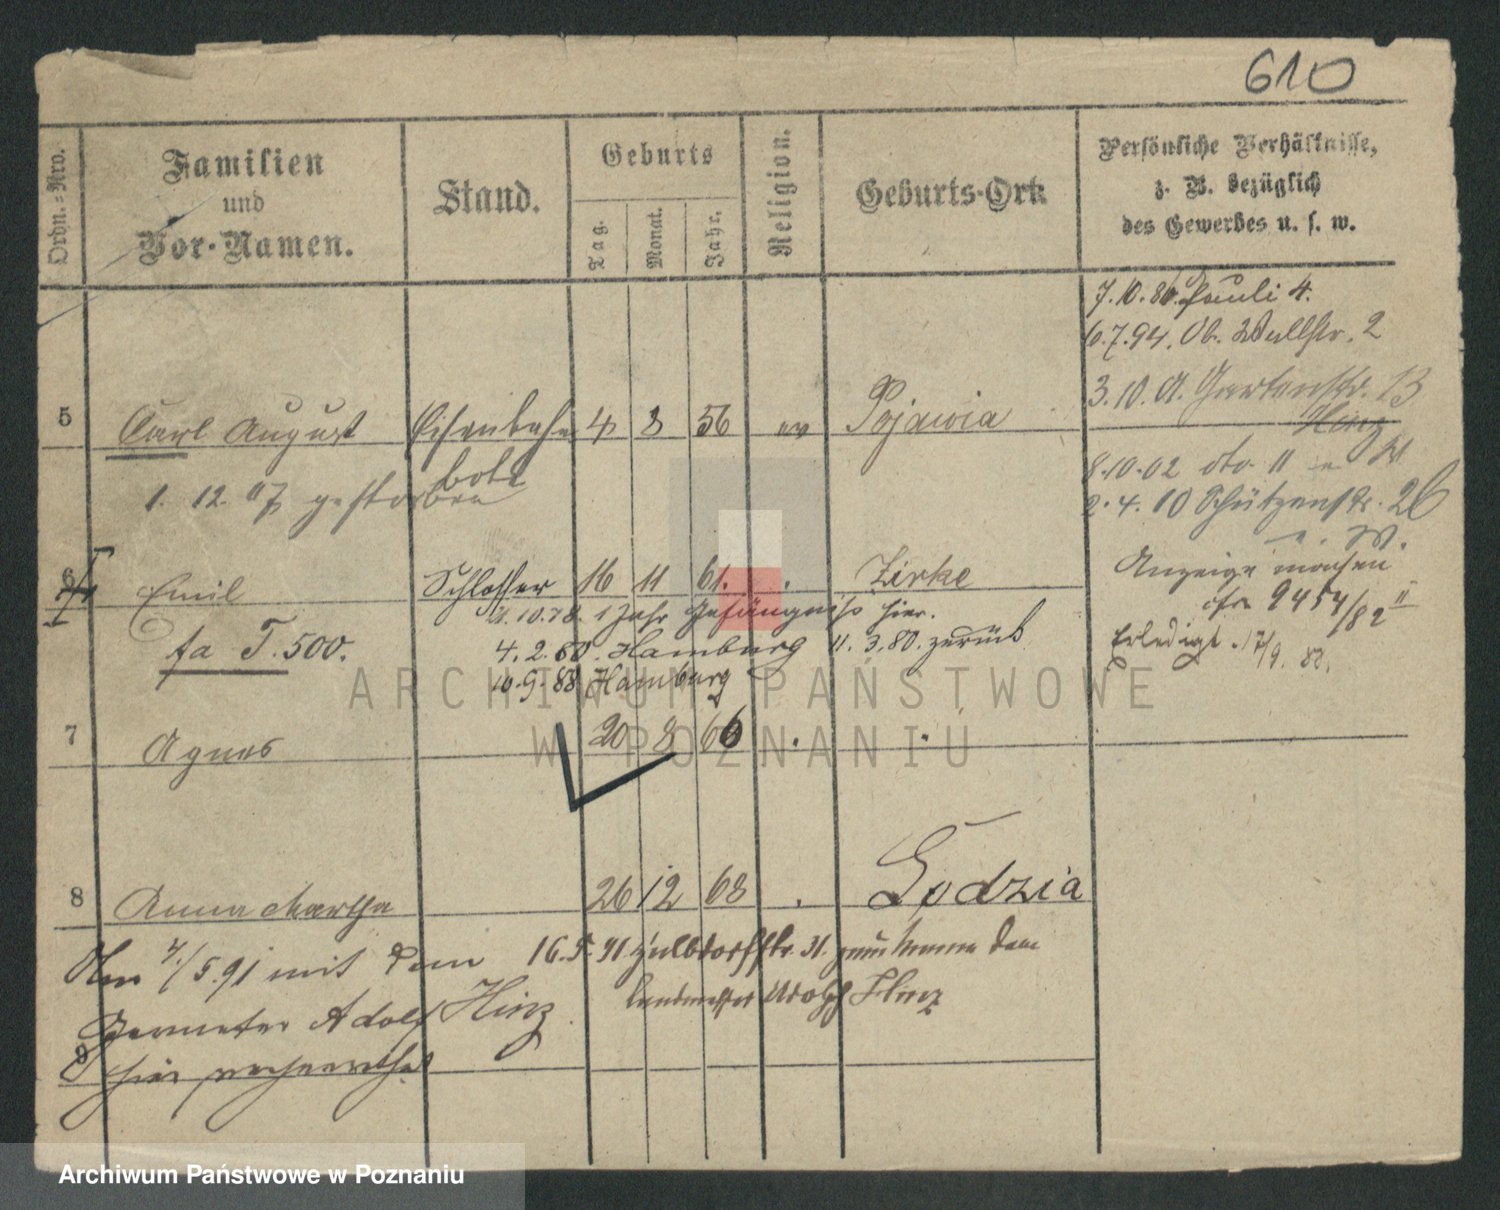 610
Ordn.-Nro.
Familien
und
Vor-Namen.
Stand.
Geburts
Tag.
Monat.
Jahr.
Religion.
Geburts-Ort
Persönliche Verhältnisse,
z. B. bezüglich
des Gewerbes u. s. w.
7.10.86. Pauli 4.
6.7.94. Ob. Wallstr. 2
3.10. Gartenstr. 13
Hinz
5 Carl August Eisenbahn 4 8 56 ev Pojawia
bote
8.10.02 dto 11
1. 12. 17 gestorben
2.4.10 Schützenstr. 26
6 Emil Schlosser 16 11 61. . Zirke
Anzeige
9454/82 II
21.10.78. 1 Jahr Gefängniss hier.
fa T. 500.
4.2.80. Hamburg 11.3.80. zurück
Erledigt. 17/9. 83.
10.9.88 Hamburg
7 Agnes 20 8 66 . .
8 Anna Martha 26 12 68 . Lodzia
/5.91 mit dem
16.5.91 str. 31. dem
Geometer Adolf Hinz
Adolph Hinz
9
hier verheirathet
ARCHIWUM PAŃSTWOWE
W POZNANIU
Archiwum Państwowe w Poznaniu